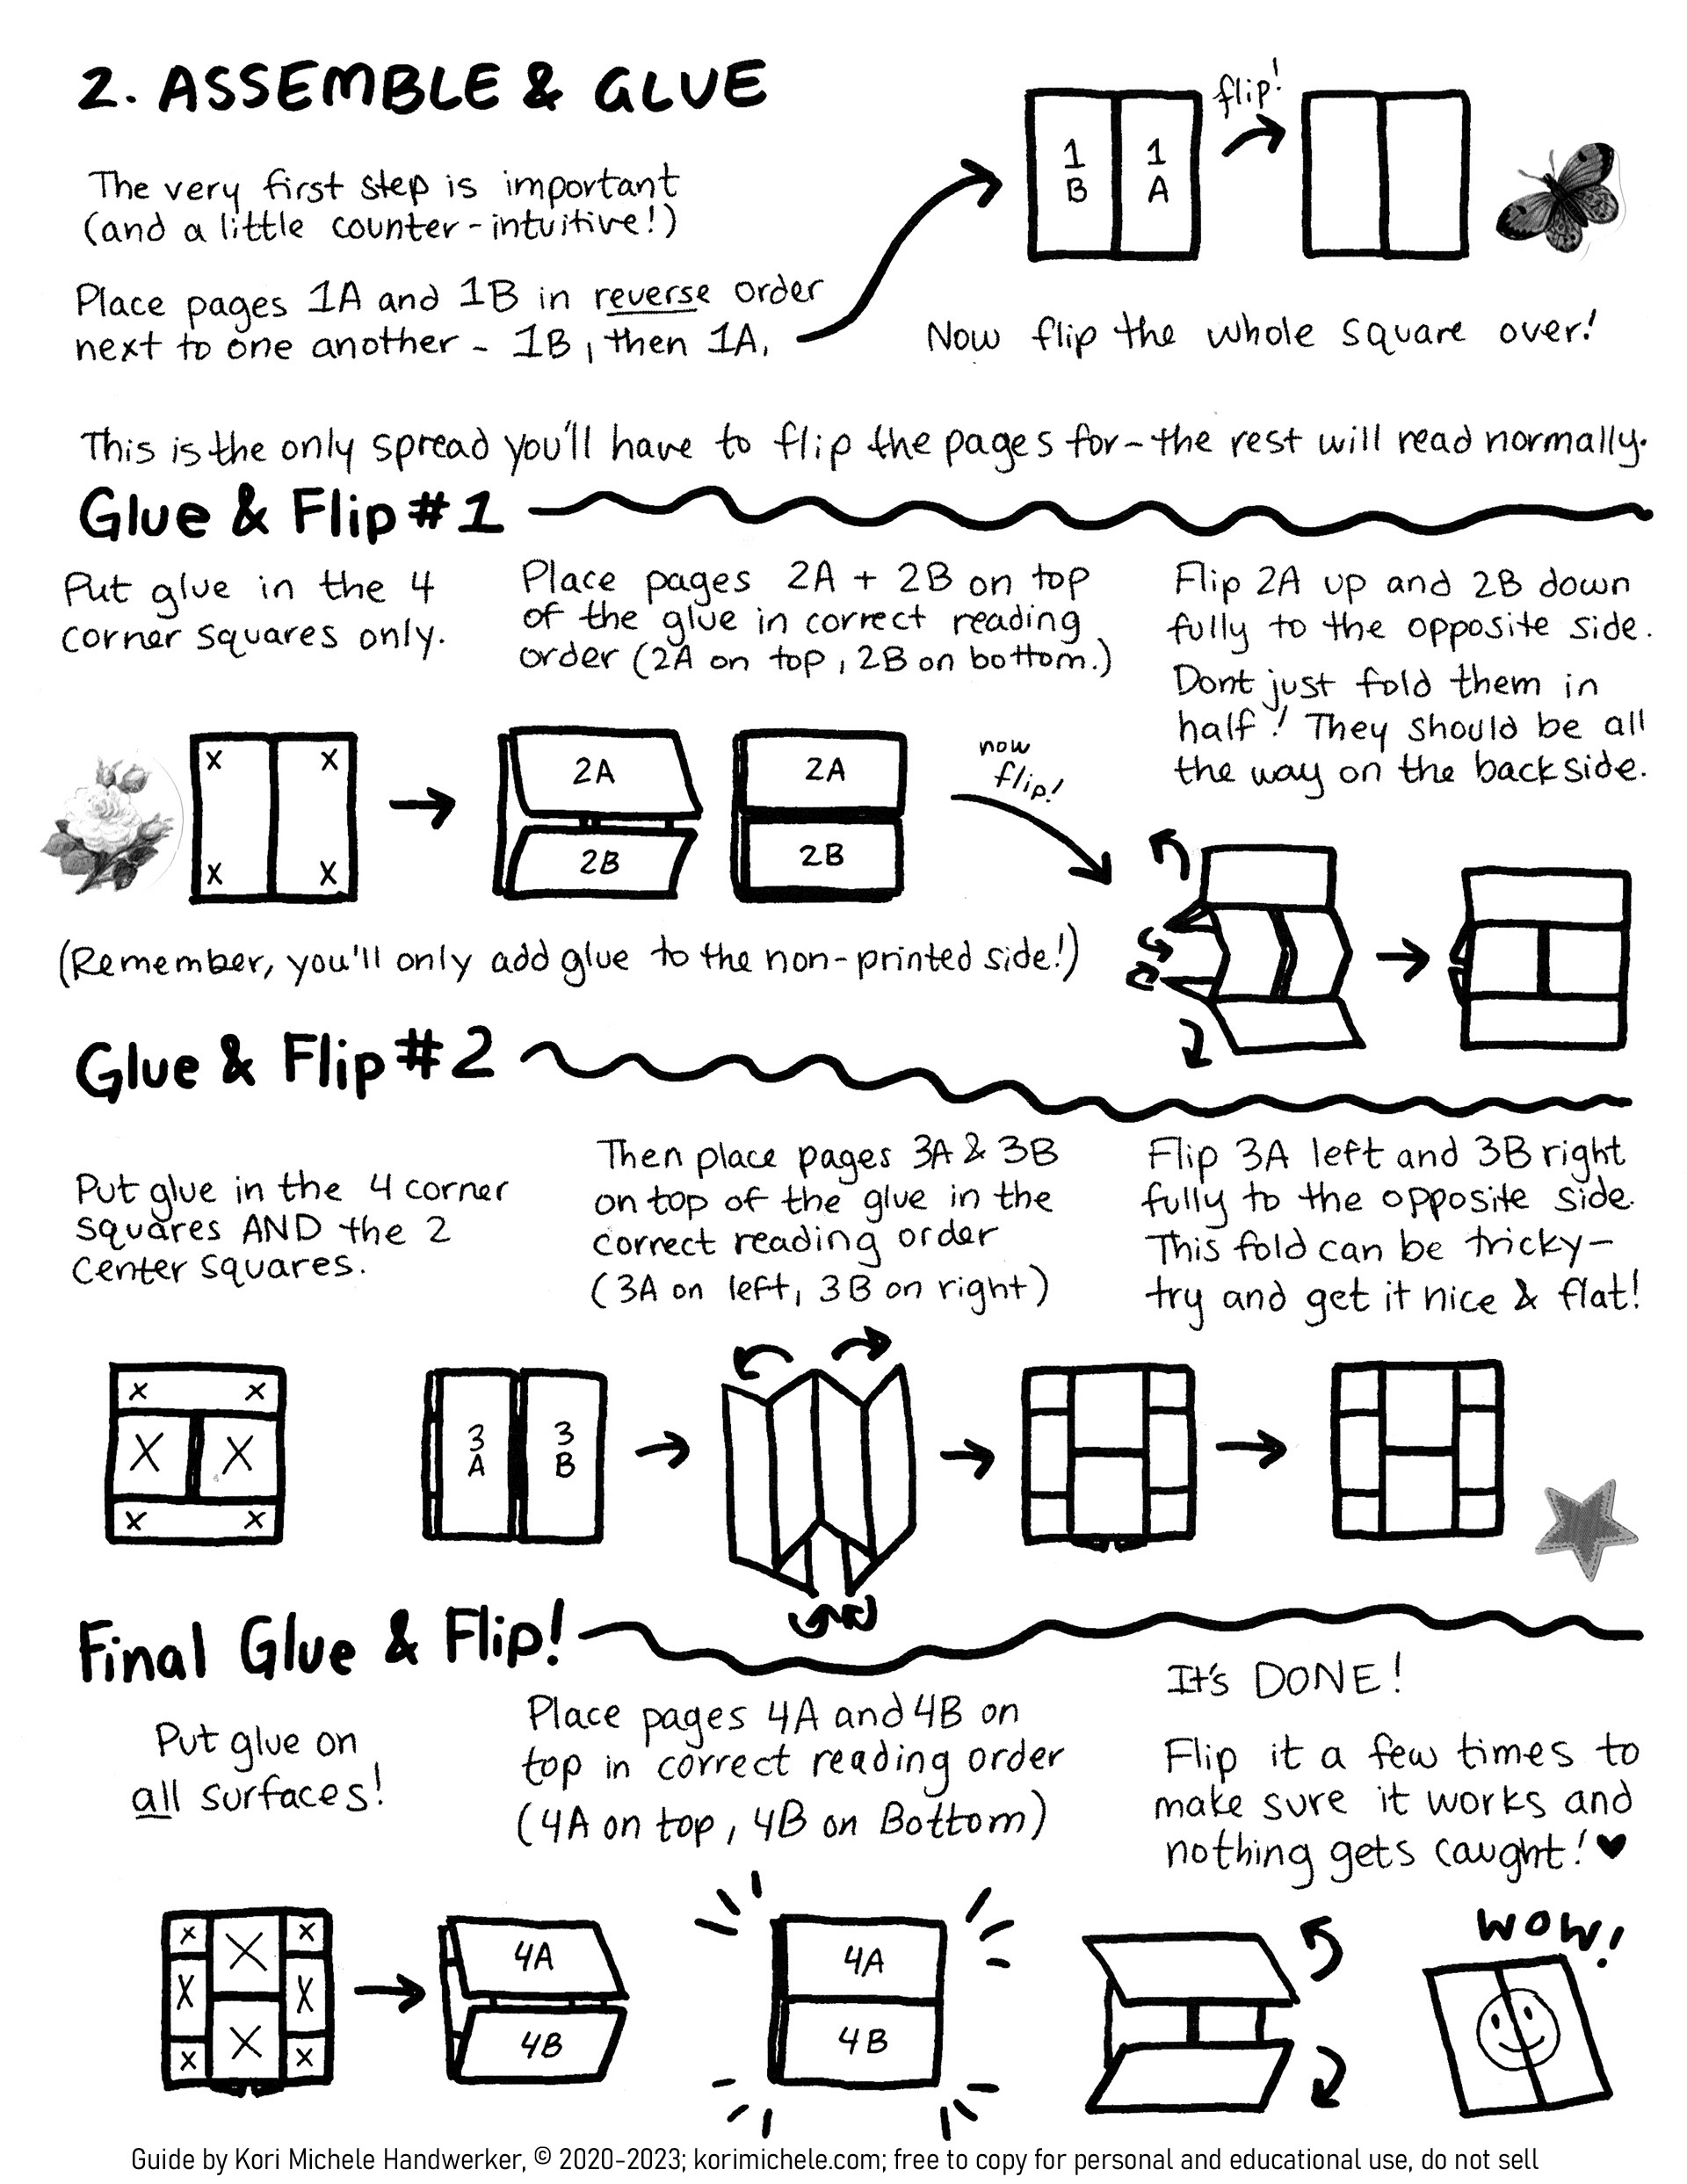 2. ASSEMBLE & GLUE
The very first step is important
(and a little counter-intuitive!)
Place pages 1A and 1B in reverse order
next to one another - 1B, then 1A.
1
B
1
A
flip!
Now flip the whole square over!
This is the only spread you'll have to flip the pages for - the rest will read normally.
Glue & Flip #1
Put glue in the 4
corner squares only.
Place pages 2A + 2B on top
of the glue in correct reading
order (2A on top, 2B on bottom.)
Flip 2A up and 2B down
fully to the opposite side.
Dont just fold them in
half! They should be all
the way on the backside.
X X
X X
2A
2B
2A
2B
now
flip!
(Remember, you'll only add glue to the non-printed side!)
Glue & Flip #2
Put glue in the 4 corner
squares AND the 2
center squares.
Then place pages 3A & 3B
on top of the glue in the
correct reading order
(3A on left, 3B on right)
Flip 3A left and 3B right
fully to the opposite side.
This fold can be tricky-
try and get it nice & flat!
X X
X X
X X
3
A
3
B
Final Glue & Flip!
Put glue on
all surfaces!
Place pages 4A and 4B on
top in correct reading order
(4A on top, 4B on Bottom)
It's DONE!
Flip it a few times to
make sure it works and
nothing gets caught! ♥
X X X
X X
X X X
4A
4B
4A
4B
WOW!
Guide by Kori Michele Handwerker, © 2020-2023; korimichele.com; free to copy for personal and educational use, do not sell